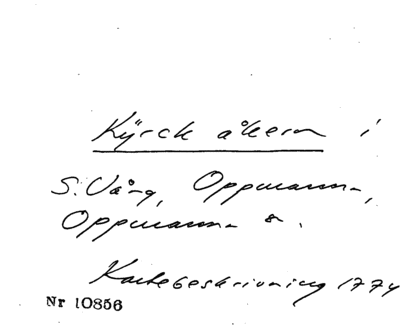 Kÿrck åkern i
S. Vång, Oppmanna,
Oppmanna s.
Kartebeskrivning 1774
Nr 10856